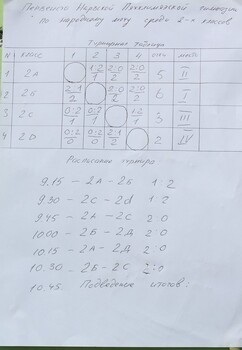 по народному мячу среди 2-х классов
Турнирная таблица
N класс 1 2 3 4 очки место
1 2А 1:2 2:0 2:0 5 II
1 2 2
2 2Б 2:1 2:0 2:0 6 I
2 2 2
3 2С 0:2 0:2 1:2 3 III
1 1 1
4 2D 0:2 0:2 2:1 2 IV
0 0 2
Расписание турнира
9.15 – 2А – 2Б 1:2
9.30 – 2С – 2d 1:2
9.45 – 2А – 2С 2:0
10.00 – 2Б – 2Д 2:0
10.15 – 2А – 2Д 2:0
10.30 – 2Б – 2С 2:0
10.45. Подведение итогов: